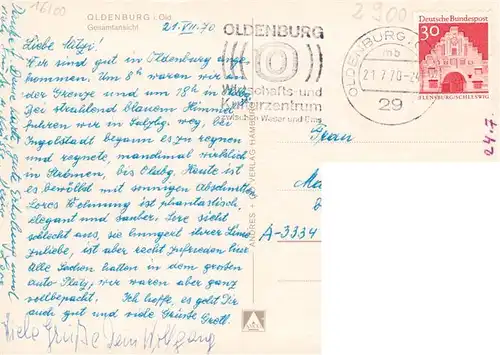 16/00
2900
OLDENBURG i. Old
Gesamtansicht
21. VII. 70
OLDENBURG
Wirtschafts- und
Kulturzentrum
zwischen Weser und Ems
OLDENBURG
mb
21.7.70-24
29
Deutsche Bundespost
30
FLENSBURG/SCHLESWIG
24.7.
Liebe Mitzi!
Wir sind gut in Oldenburg ange-
kommen. Um 8h waren wir an
der Grenze und um 18h in
Bei strahlend blauem Himmel
fuhren wir in weg, bei
Ingolstadt begann es zu regnen
und regnete, manchmal wirklich
in Strömen, bis Heute ist
es bewölkt mit sonnigen Abschnitten.
Lores Wohnung ist phantastisch,
elegant und sauber. Sie sieht
schlecht aus, sie hungert ihrer Linie
zuliebe, ist aber recht zufrieden hier.
Alle Sachen hatten in dem großen
Auto Platz, wir waren aber ganz
vollbepackt. Ich hoffe, es geht Dir
auch gut und viele Grüße Gretl.
Viele Grüße Dein Wolfgang
Frau
A-3334
ANDRES + CO VERLAG HAMBURG